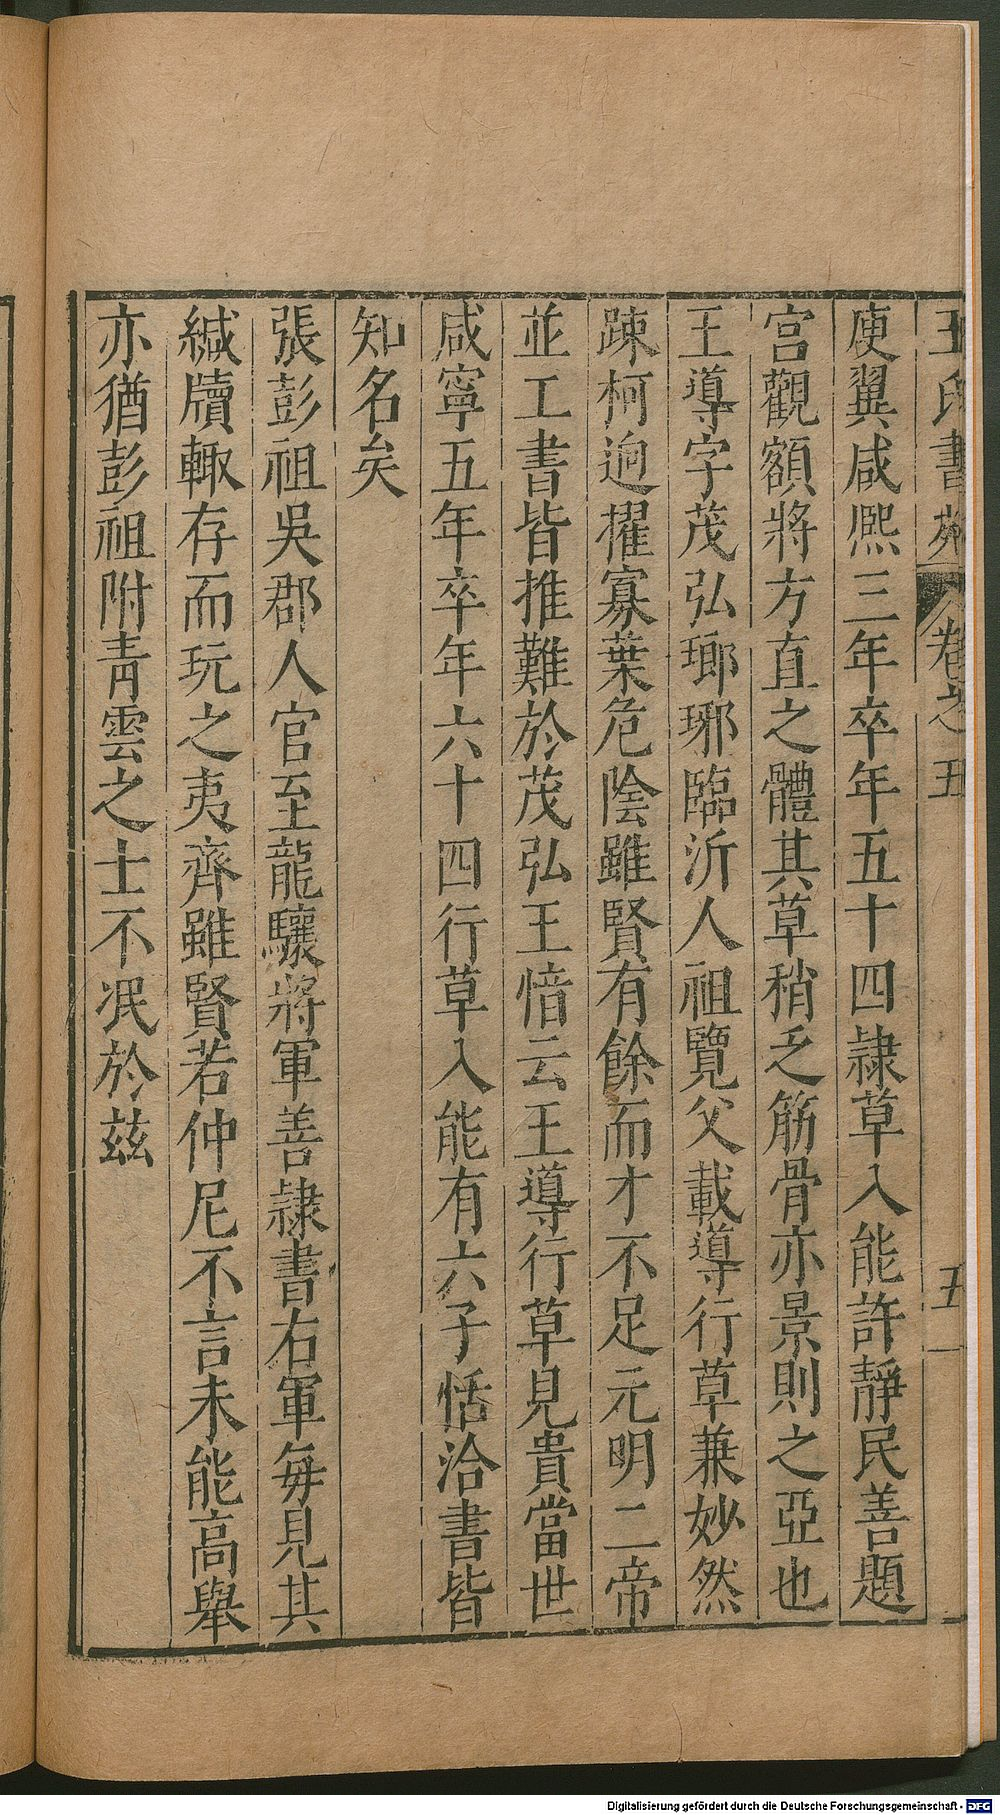 王氏書苑 卷之五 五
庾翼咸熙三年卒年五十四隷草入能許靜民善題
宮觀額將方直之體其草稍乏筋骨亦景則之亞也
王導字茂弘瑯琊臨沂人祖覽父載導行草兼妙然
踈柯逈擢寡葉危陰雖賢有餘而才不足元明二帝
並工書皆推難於茂弘王愔云王導行草見貴當世
咸寧五年卒年六十四行草入能有六子恬洽書皆
知名矣
張彭祖吳郡人官至龍驤將軍善隷書右軍每見其
緘牘輙存而玩之夷齊雖賢若仲尼不言未能高舉
亦猶彭祖附青雲之士不泯於兹
Digitalisierung gefördert durch die Deutsche Forschungsgemeinschaft - DFG